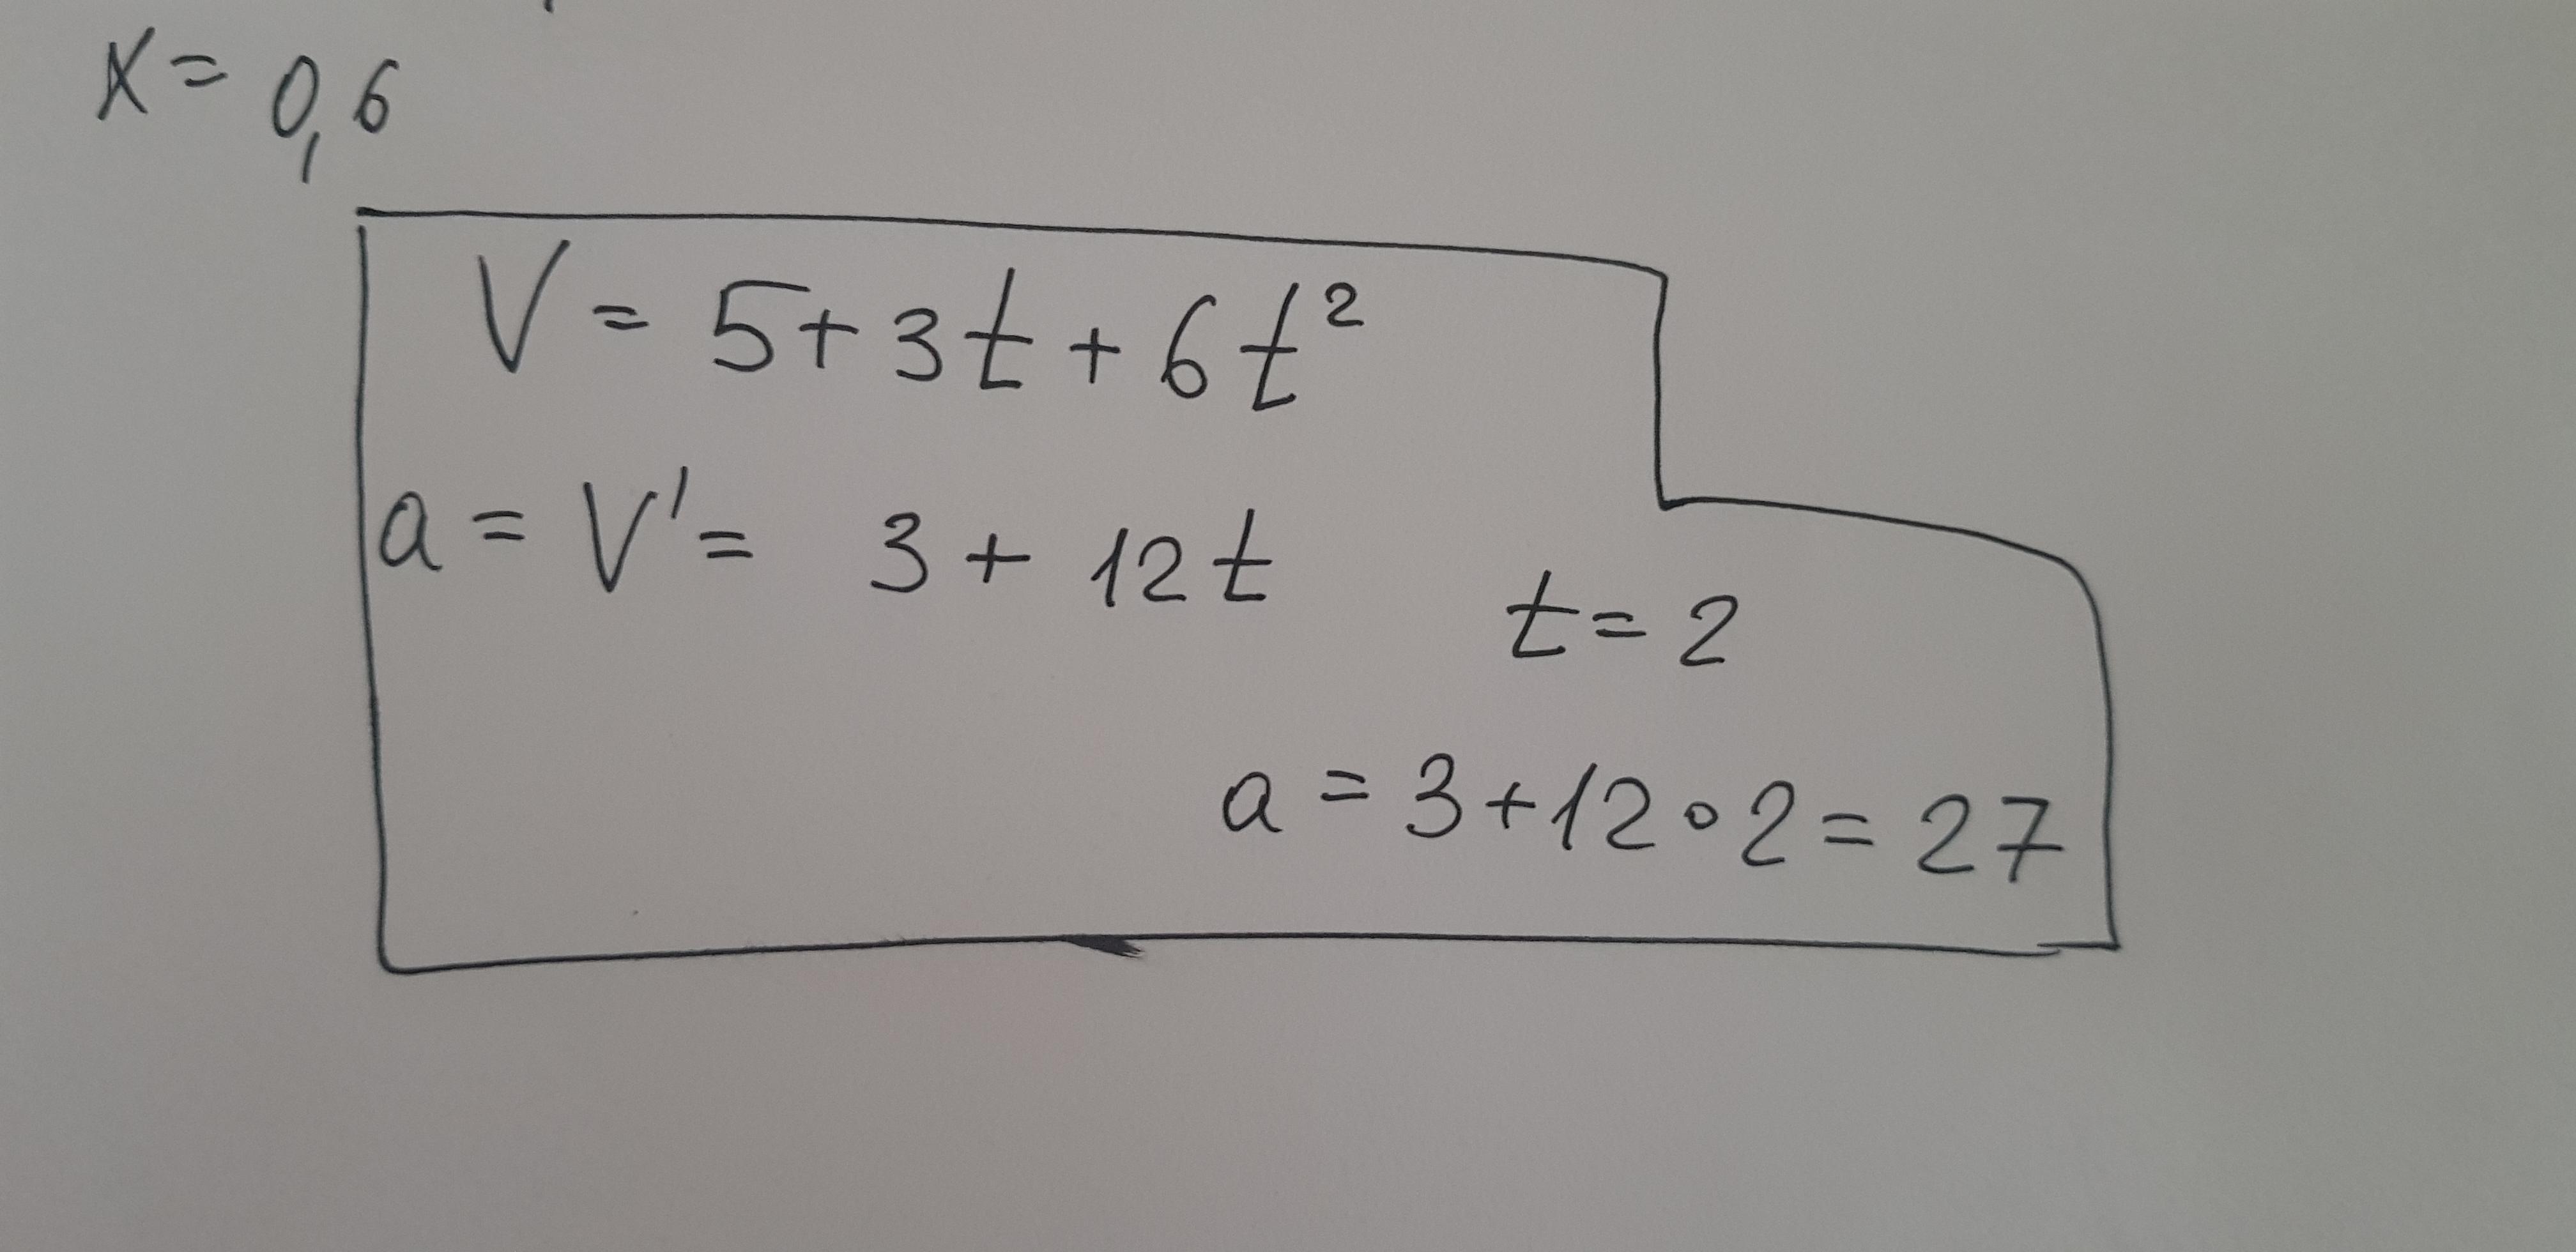 x = 0,6
V = 5 + 3t + 6t²
a = V' = 3 + 12t
t = 2
a = 3 + 12 ∘ 2 = 27